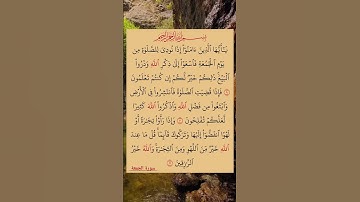 بسم الله الرحمن الرحيم
يَٰٓأَيُّهَا ٱلَّذِينَ ءَامَنُوٓا۟ إِذَا نُودِىَ لِلصَّلَوٰةِ مِن
يَوْمِ ٱلْجُمُعَةِ فَٱسْعَوْا۟ إِلَىٰ ذِكْرِ ٱللَّهِ وَذَرُوا۟
ٱلْبَيْعَ ذَٰلِكُمْ خَيْرٌ لَّكُمْ إِن كُنتُمْ تَعْلَمُونَ
۩ فَإِذَا قُضِيَتِ ٱلصَّلَوٰةُ فَٱنتَشِرُوا۟ فِى ٱلْأَرْضِ
وَٱبْتَغُوا۟ مِن فَضْلِ ٱللَّهِ وَٱذْكُرُوا۟ ٱللَّهَ كَثِيرًا
لَّعَلَّكُمْ تُفْلِحُونَ ۩ وَإِذَا رَأَوْا۟ تِجَٰرَةً أَوْ
لَهْوًا ٱنفَضُّوٓا۟ إِلَيْهَا وَتَرَكُوكَ قَآئِمًا قُلْ مَا عِندَ
ٱللَّهِ خَيْرٌ مِّنَ ٱللَّهْوِ وَمِنَ ٱلتِّجَٰرَةِ وَٱللَّهُ خَيْرُ
ٱلرَّٰزِقِينَ ۩
سورة الجمعة